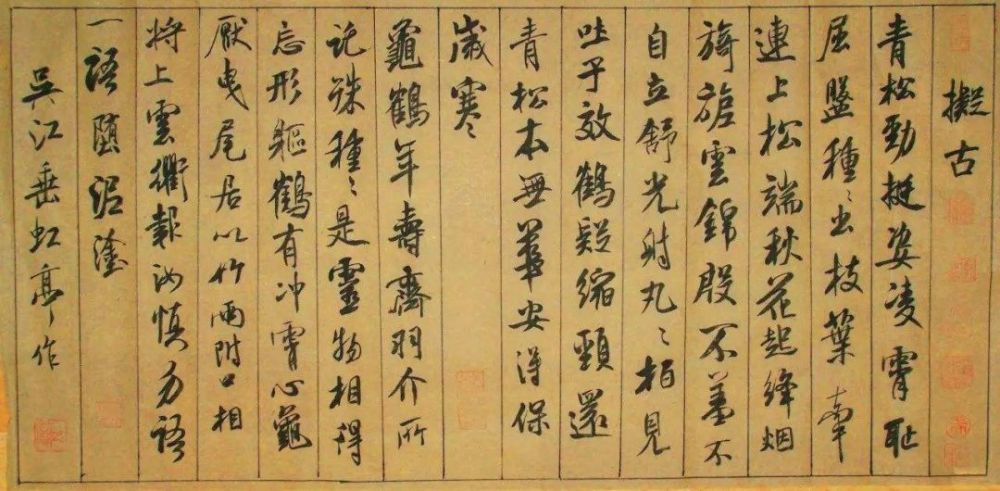 擬古
青松勁挺姿凌霄耻
屈盤種〻出枝葉牽
連上松端秋花起絳烟
旖旎雲錦殷不羞不
自立舒光射丸〻柏見
吐子效鶴疑縮頸還
青松本無華安得保
歲寒
龜鶴年壽齊羽介所
託殊種〻是靈物相得
忘形軀鶴有冲霄心龜
厭曳尾居以竹兩附口相
將上雲衢報汝慎勿語
一語墮泥塗
吳江垂虹亭作